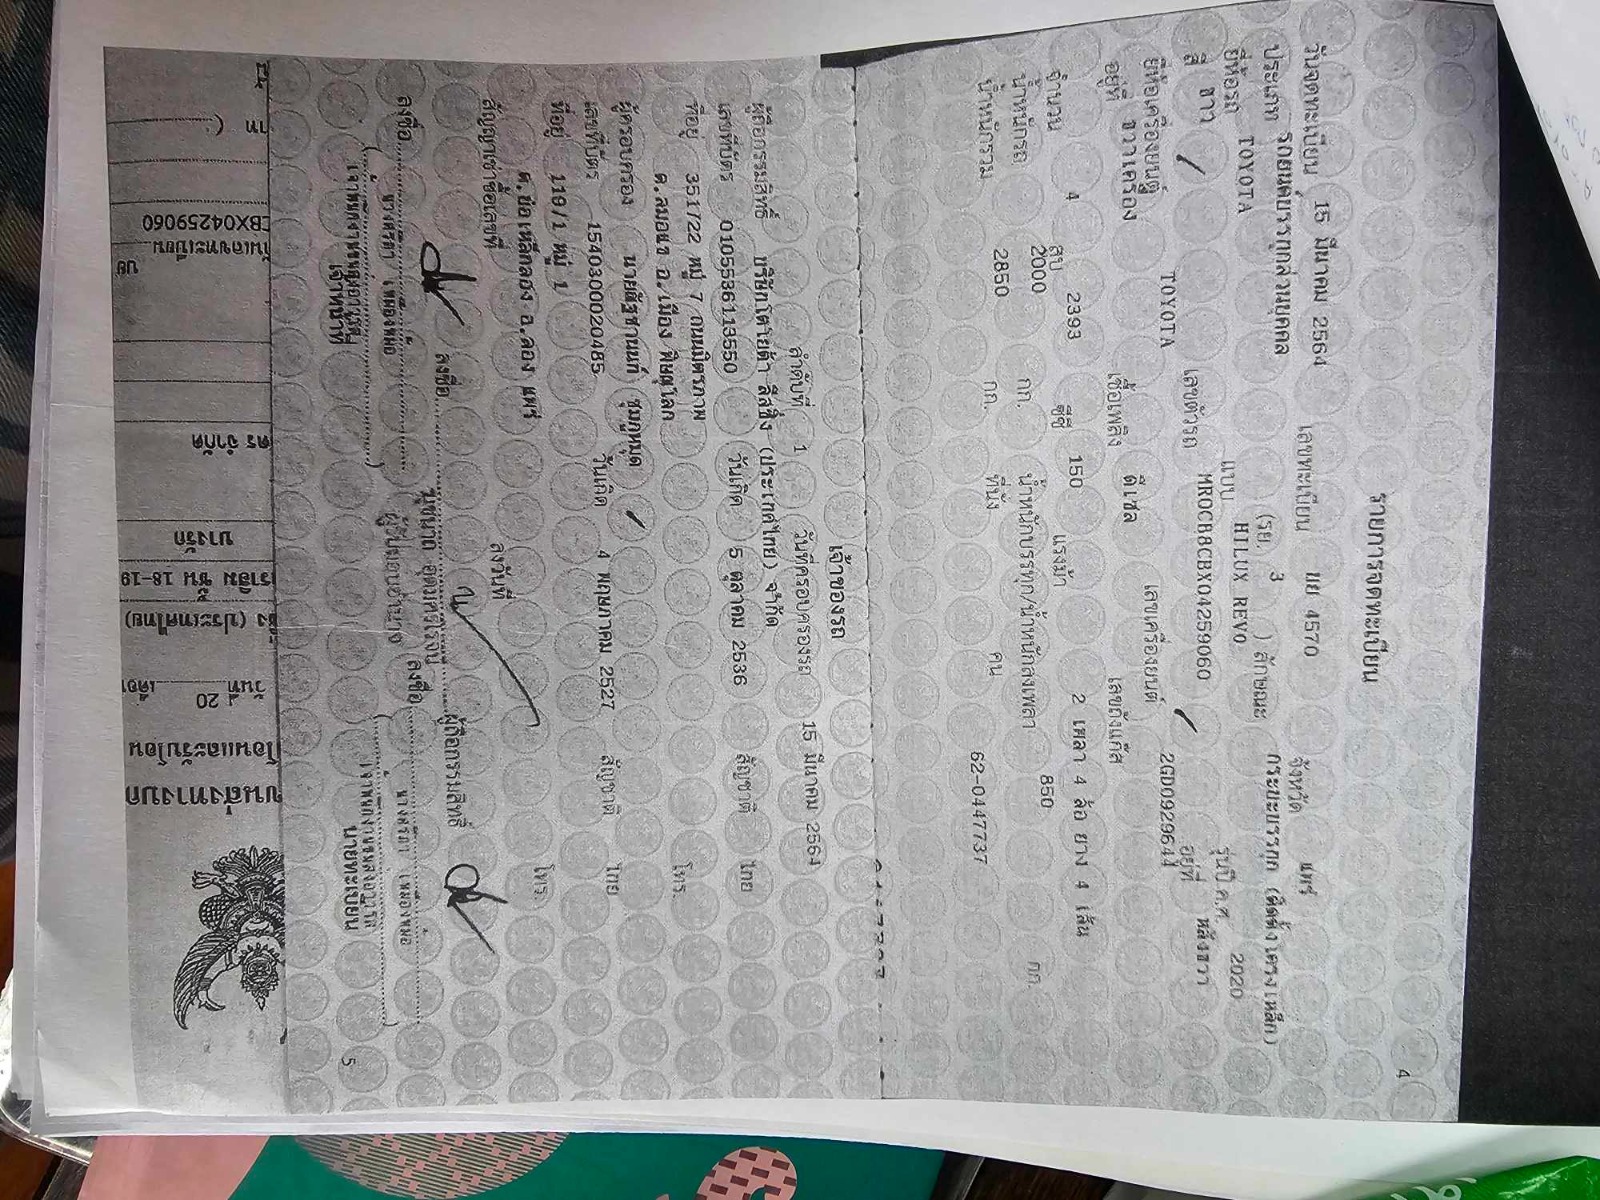 4
รายการจดทะเบียน
วันจดทะเบียน 15 มีนาคม 2564 เลขทะเบียน ผย 4570 จังหวัด แพร่
ประเภท รถยนต์บรรทุกส่วนบุคคล (รย. 3 ) ลักษณะ กระบะบรรทุก (ติดตั้งโครงเหล็ก)
ยี่ห้อรถ TOYOTA แบบ HILUX REVO รุ่นปี ค.ศ. 2020
สี ขาว เลขตัวรถ MR0CB8CBX04259060 อยู่ที่ หลังขวา
ยี่ห้อเครื่องยนต์ TOYOTA เลขเครื่องยนต์ 2GD0929644
อยู่ที่ ขวาเครื่อง เชื้อเพลิง ดีเซล เลขถังแก๊ส
จำนวน 4 สูบ 2393 ซีซี 150 แรงม้า 2 เพลา 4 ล้อ ยาง 4 เส้น
น้ำหนักรถ 2000 กก. น้ำหนักบรรทุก/น้ำหนักลงเพลา 850 กก.
น้ำหนักรวม 2850 กก. ที่นั่ง คน 62-0447737
เจ้าของรถ
ลำดับที่ 1 วันที่ครอบครองรถ 15 มีนาคม 2564
ผู้ถือกรรมสิทธิ์ บริษัทโตโยต้า ลีสซิ่ง (ประเทศไทย) จำกัด
เลขที่บัตร 0105536113550 วันเกิด 5 ตุลาคม 2536 สัญชาติ ไทย
ที่อยู่ 351/22 หมู่ 7 ถนนมิตรภาพ
ต.สมอแข อ.เมือง พิษณุโลก โทร.
ผู้ครอบครอง นายณัฐชานนท์ ชุมภูหมุด
เลขที่บัตร 1540300020485 วันเกิด 4 พฤษภาคม 2527 สัญชาติ ไทย
ที่อยู่ 110/1 หมู่ 1
ต.บ่อเหล็กลอง อ.ลอง แพร่ โทร.
สัญญาเช่าซื้อเลขที่ ลงวันที่
ลงชื่อ ผู้ถือกรรมสิทธิ์
ลงชื่อ ลงชื่อ
เจ้าหน้าที่ นายทะเบียน
5
ขนส่งทางบก
โอนและรับโอน
วันที่ 20 เดือ
(ประเทศไทย)
ชั้น 18-19
บางรัก
จำกัด
CBX04259060